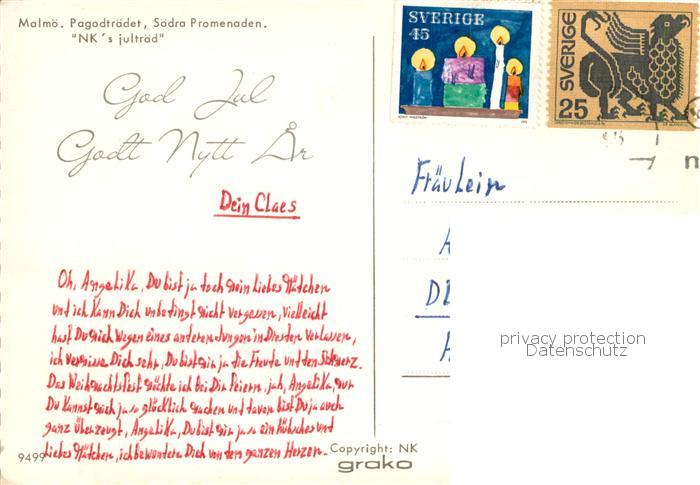 Malmö. Pagodträdet, Södra Promenaden.
"NK´s julträd"
SVERIGE
45
SVERIGE
25
God Jul
Godt Nytt År
Dein Claes
Fräulein
D
Oh, Angelika, Du bist ja doch mein liebes Mätchen
und ich kann Dich unbedingt nicht vergessen, vielleicht
hast Du mich wegen eines anderen Jungen in Dresden verlassen,
ich vermisse Dich sehr, Du bist mir ja die Freute und den Schmerz.
Das Weihnachtsfest möchte ich bei Dir feiern, jah, Angelika, nur
Du kannst mich ja so glücklich machen und davon bist Du ja auch
ganz überzeugt, Angelika, Du bist mir ja so ein hübsches und
liebes Mätchen, ich bewundere Dich von dem ganzen Herzen.
privacy protection
Datenschutz
9499
Copyright: NK
grako